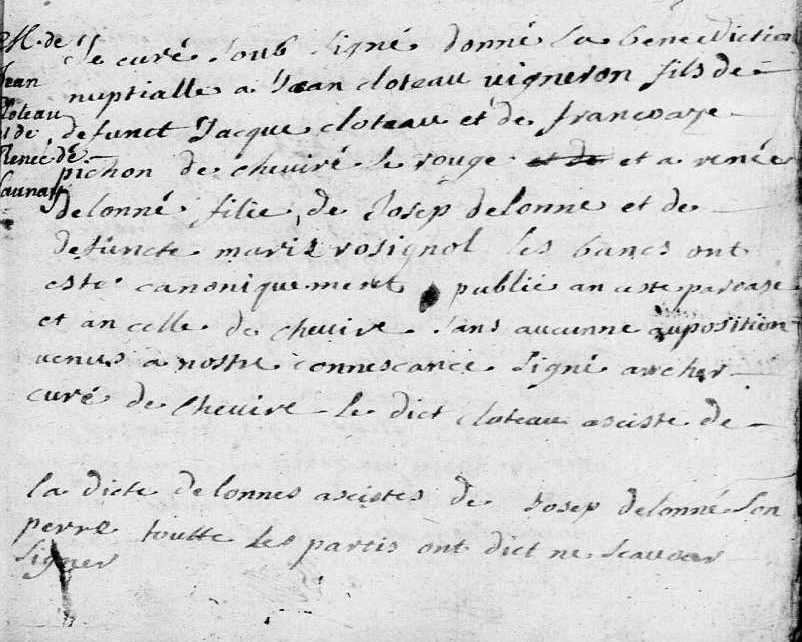 M. de
Jean
Cloteau
et de
Renee de
Launay
Je curé soub signé donné la benediction
nuptialle a Jean cloteau vigneron fils de
defunct Jacque cloteau et de francoaze
pichon de cheviré le rouge et de et a renée
delonné fille de Josep delonne et de
defuncte marie rosignol les bancs ont
esté canoniquement publié an ceste paroase
et an celle de chevire sans aucunne auposition
venus a nostre connescance signé archer
curé de chevire le dict cloteau asciste de
la dicte delonnes ascistes de Josep delonné son
perre toutte les partis ont dict ne scavoer
signer